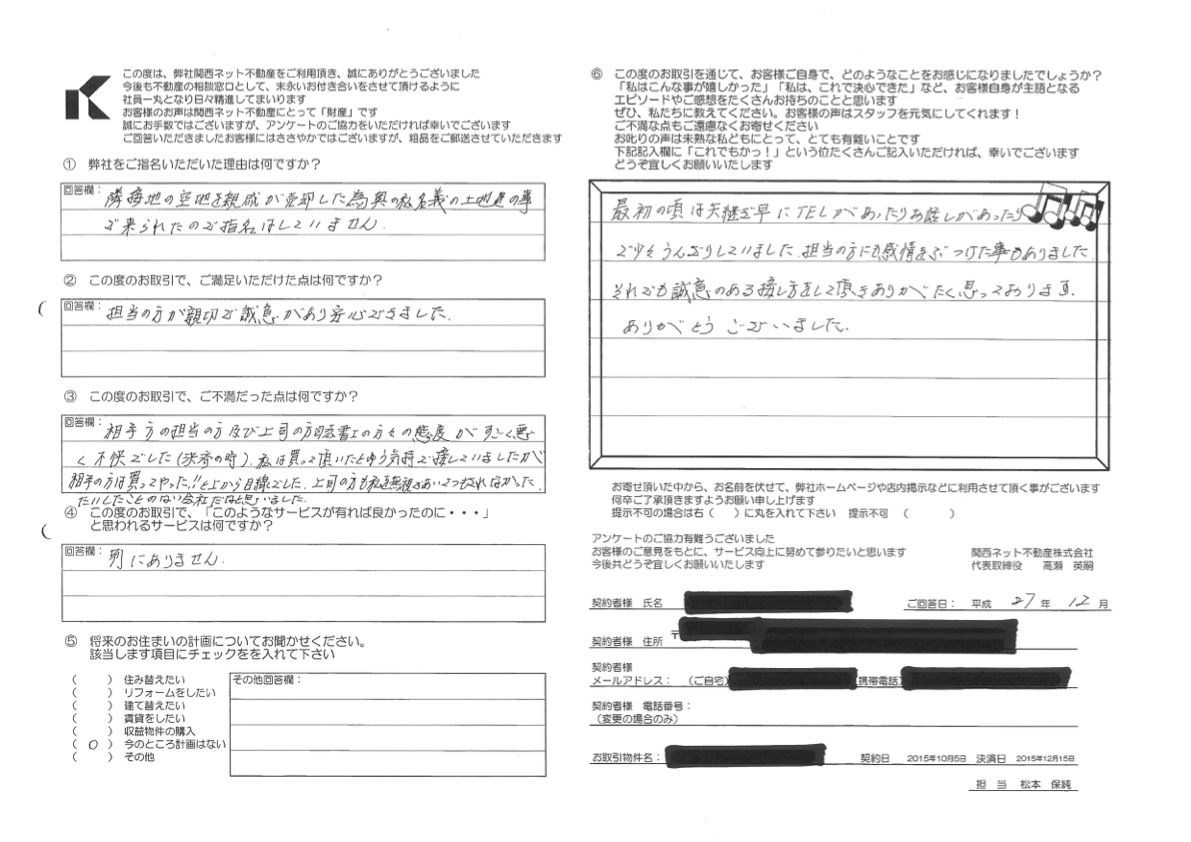 この度は、弊社関西ネット不動産をご利用頂き、誠にありがとうございました
今後も不動産の相談窓口として、末永いお付き合いをさせて頂けるように
社員一丸となり日々精進してまいります
お客様のお声は関西ネット不動産にとって「財産」です
誠にお手数ではございますが、アンケートのご協力をいただければ幸いでございます
ご回答いただきましたお客様にはささやかではございますが、粗品をご郵送させていただきます
① 弊社をご指名いただいた理由は何ですか？
回答欄：
隣接地の空地を親戚が売却した為奥の私名義の土地建の事
で来られたので指名はしていません.
② この度のお取引で、ご満足いただけた点は何ですか？
回答欄：
担当の方が親切で誠意があり安心できました.
③ この度のお取引で、ご不満だった点は何ですか？
回答欄：
相手方の担当の方及び上司の方司法書士の方々の態度がすごく悪
く不快でした(決済の時). 私は買って頂いたとゆう気持で接していましたが
相手の方は買ってやった!!と上から目線でした. 上司の方も私を無視をあいさつもされなかった.
たいしたことのない会社だなと思いました.
④ この度のお取引で、「このようなサービスが有れば良かったのに・・・」
と思われるサービスは何ですか？
回答欄：
別にありません.
⑤ 将来のお住まいの計画についてお聞かせください。
該当します項目にチェックをを入れて下さい
( ) 住み替えたい
( ) リフォームをしたい
( ) 建て替えたい
( ) 賃貸をしたい
( ) 収益物件の購入
( O ) 今のところ計画はない
( ) その他
その他回答欄：
⑥ この度のお取引を通じて、お客様ご自身で、どのようなことをお感じになりましたでしょうか？
「私はこんな事が嬉しかった」「私は、これで決心できた」など、お客様自身が主語となる
エピソードやご感想をたくさんお持ちのことと思います
ぜひ、私たちに教えてください。お客様の声はスタッフを元気にしてくれます！
ご不満な点もご遠慮なくお寄せください
お叱りの声は未熟な私どもにとって、とても有難いことです
下記記入欄に「これでもかっ！」という位たくさんご記入いただければ、幸いでございます
どうぞ宜しくお願いいたします
最初の頃は矢継ぎ早にTELがあったりお話しがあったり
で少々うんざりしていました. 担当の方にも感情をぶつけた事もありました.
それでも誠意のある接し方をして頂きありがたく思っております.
ありがとうございました.
お寄せ頂いた中から、お名前を伏せて、弊社ホームページや店内掲示などに利用させて頂く事がございます
何卒ご了承頂きますようお願い申し上げます
提示不可の場合は右（ ）に丸を入れて下さい 提示不可 （ ）
アンケートのご協力有難うございました
お客様のご意見をもとに、サービス向上に努めて参りたいと思います
今後共どうぞ宜しくお願いいたします
関西ネット不動産株式会社
代表取締役 高瀬 英嗣
契約者様 氏名
ご回答日： 平成 27 年 12 月
契約者様 住所 〒
契約者様
メールアドレス： （ご自宅） （携帯電話）
契約者様 電話番号：
（変更の場合のみ）
お取引物件名： 契約日 2015年10月5日 決済日 2015年12月15日
担 当 松本 保純